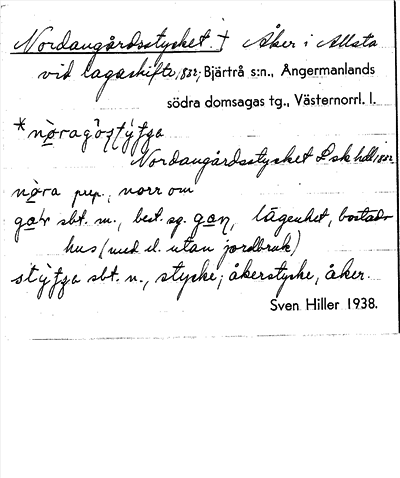 Nordangårdsstycket. † Åker i Allsta
vid lagaskifte, 1832; Bjärtrå s:n., Ångermanlands
södra domsagas tg., Västernorrl. l.
Nordangårdsstycket L sk hdl 1832.
nòra prep., norr om
sbt. m., best. sg. lägenhet, bostads-
hus (med el. utan jordbruk)
sbt. n., stycke; åkerstycke, åker.
Sven Hiller 1938.